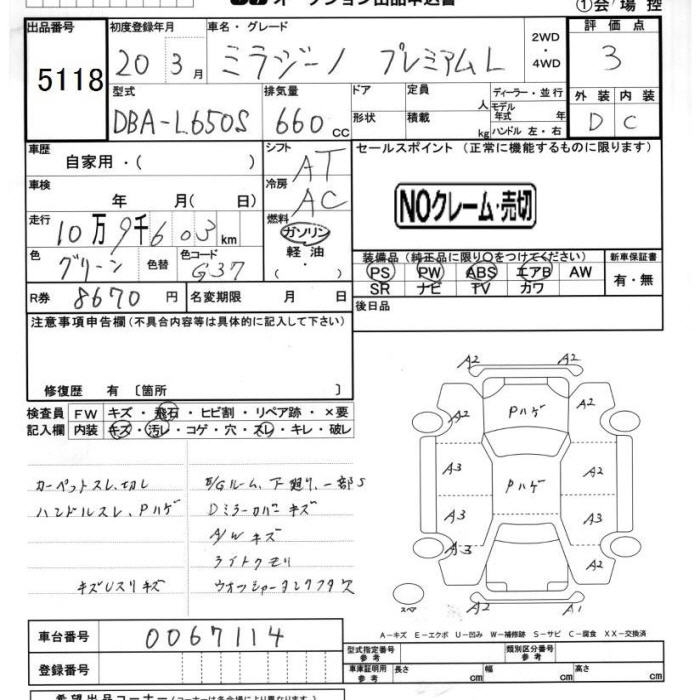 オークション出品申込書
①会場控
出品番号
5118
初度登録年月
20 3月
車名・グレード
ミラジーノ プレミアムL
2WD
・
4WD
評価点
3
型式
DBA-L650S
排気量
660 cc
ドア
形状
定員
人
積載
kg
ディーラー・並行
モデル
年式 年
ハンドル 左・右
外装 内装
D C
車歴
自家用・( )
シフト
AT
車検
年 月( 日)
冷房
AC
走行
10万9千603km
燃料
ガソリン
軽油
・( )
色
グリーン
色替
色コード
G37
R券 8670円
名変期限 月 日
セールスポイント (正常に機能するものに限ります)
NOクレーム・売切
装備品(純正品に限り○をつけてください)
PS PW ABS エアB AW
SR ナビ TV カワ
新車保証書
有・無
後日品
注意事項申告欄(不具合内容等は具体的に記入して下さい)
修復歴 有 〔箇所 〕
検査員
記入欄
FW キズ・飛石・ヒビ割・リペア跡・×要
内装 キズ・汚レ・コゲ・穴・スレ・キレ・破レ
カーペットスレ、切レ
ハンドルスレ、Pハゲ
E/Gルーム、下廻り、一部S
Dミラーカバーキズ
A/Wキズ
ライトクモリ
キズUスリキズ
A2 A2
A2 Pハゲ A2
A3 Pハゲ A2
A3 A3
A3 A2
A2 A1
スペア
A-キズ E-エクボ U-凹み W-補修跡 S-サビ C-腐食 XX-交換済
車台番号
0067114
登録番号
型式指定番号
参考
類別区分番号
参考
車庫証明用
参考
長さ cm 幅 cm 高さ cm
希望出品コーナー(コーナーは各会場により異なります)